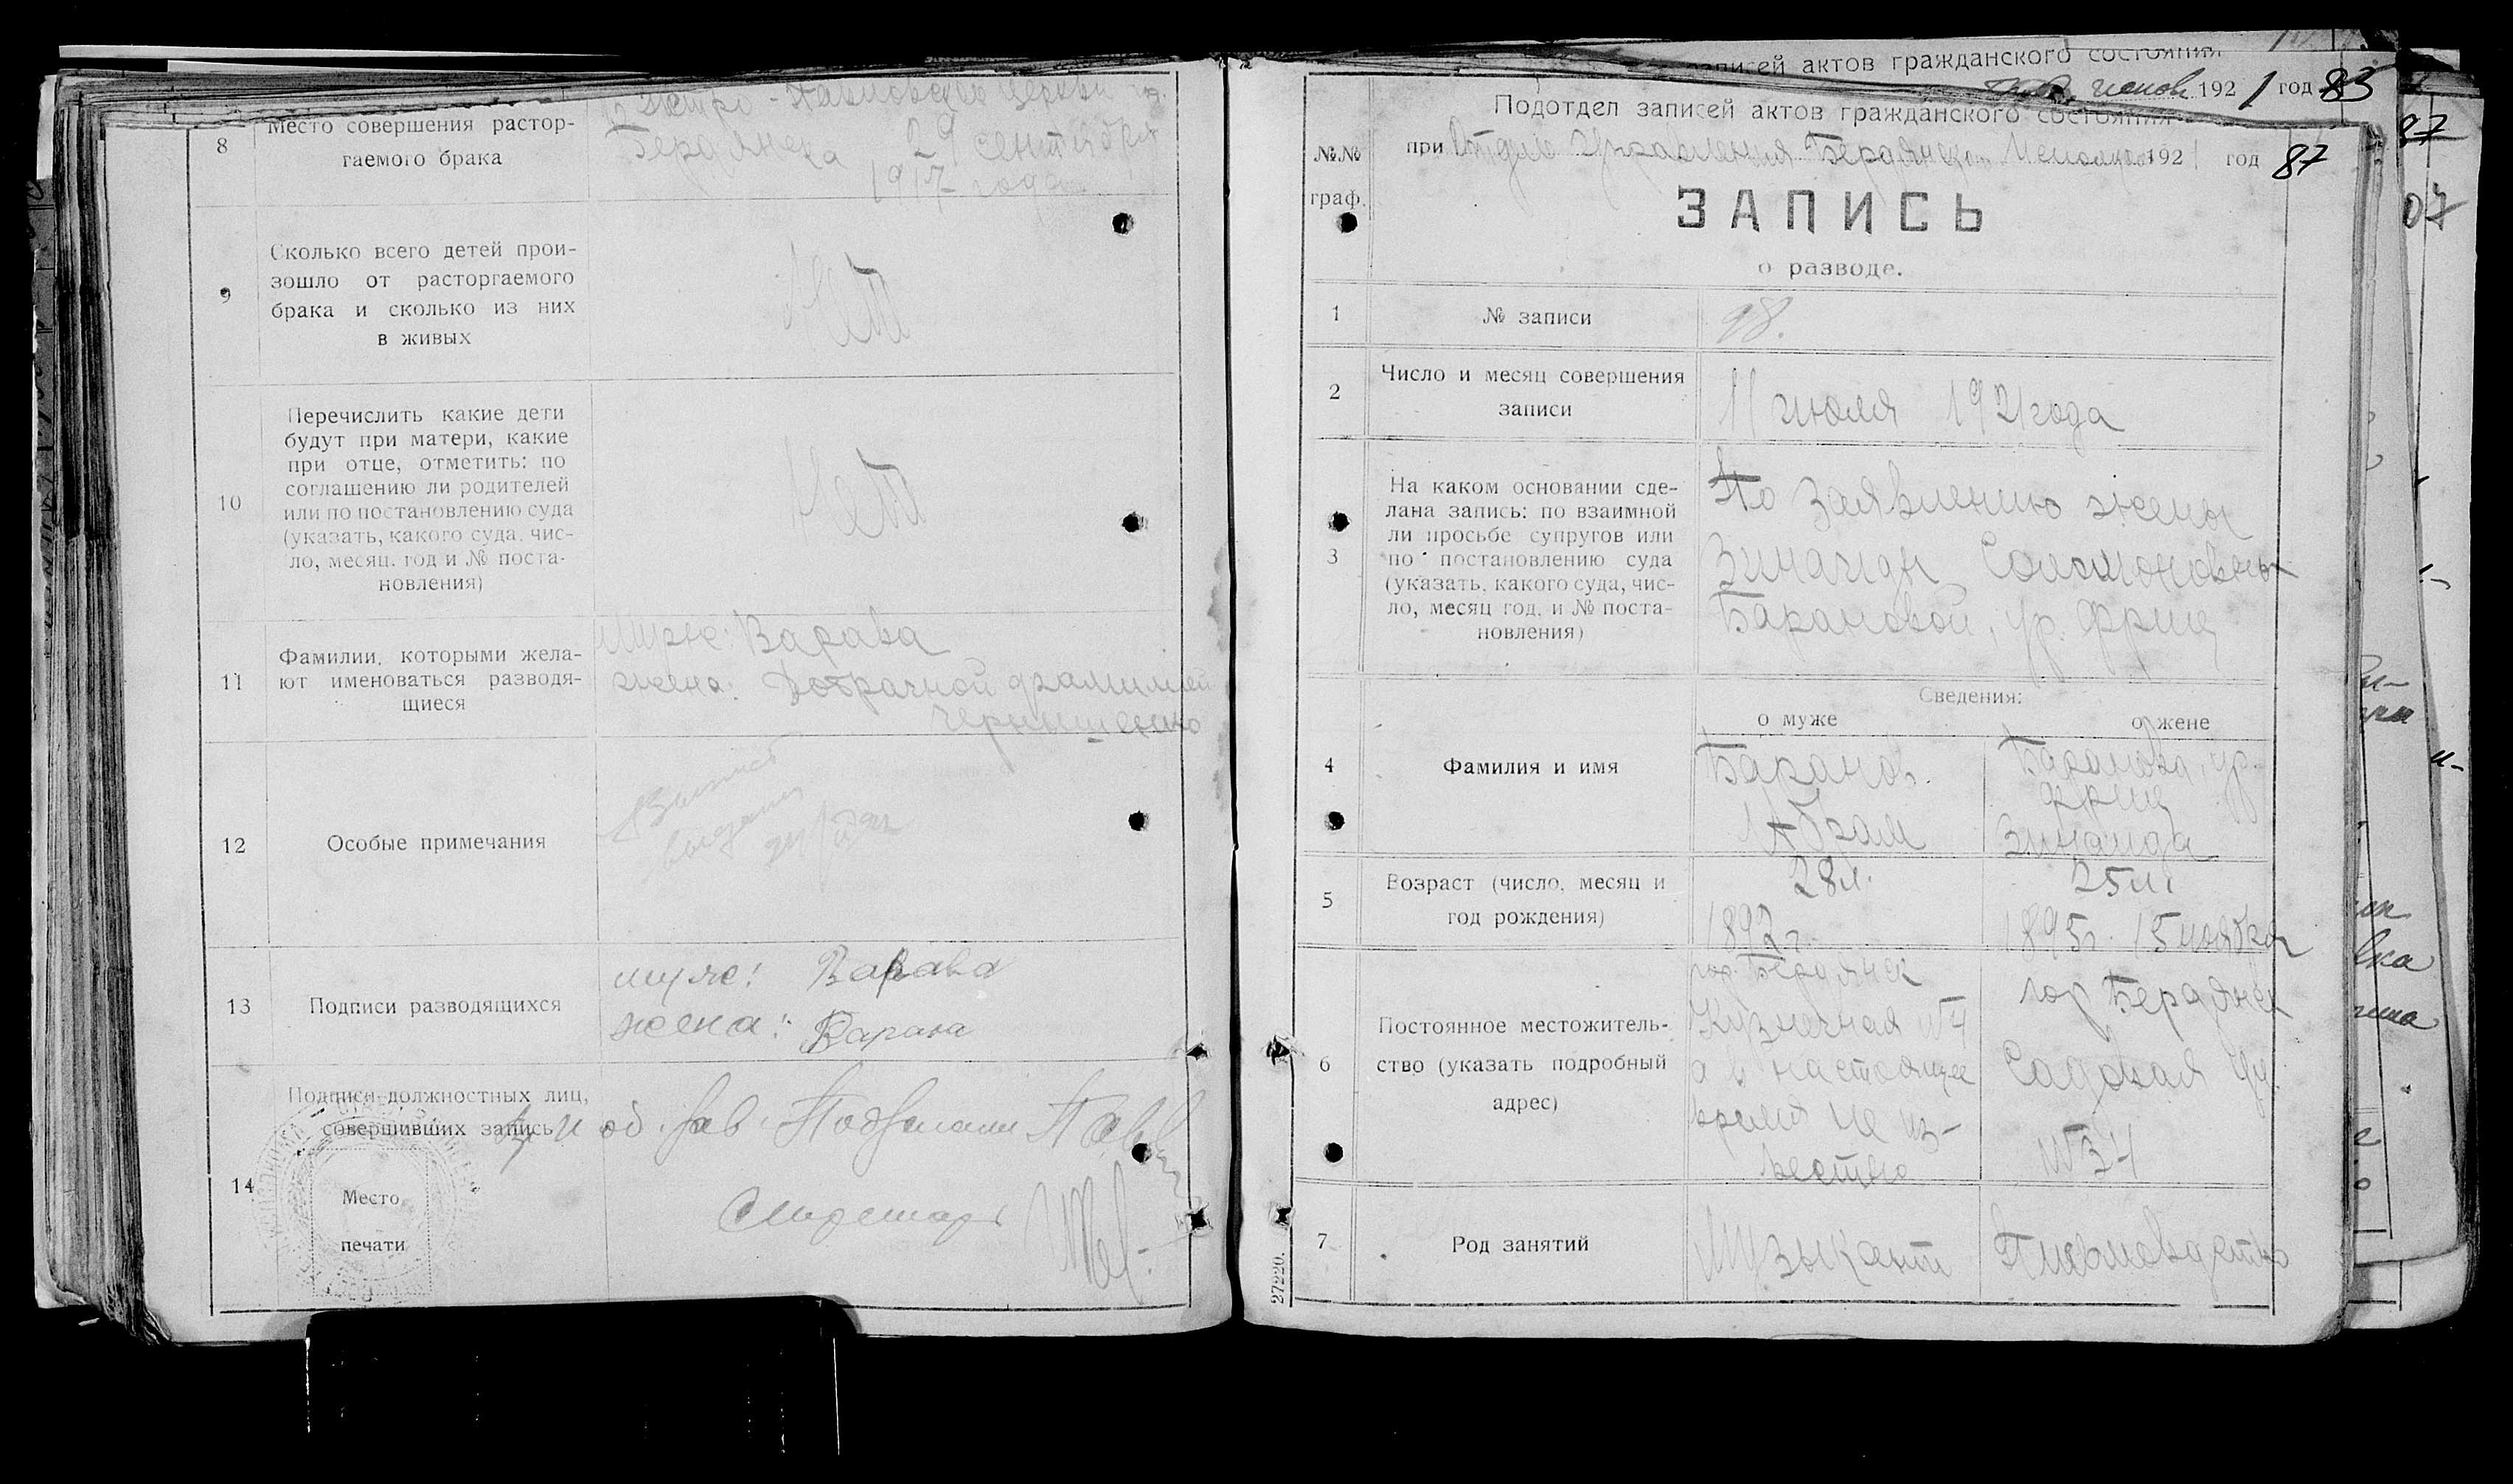 8
Место совершения растор-
гаемого брака
Петро-Павловской церкви г.
Бердянска 29 сентября
1917 года
9
Сколько всего детей прои-
зошло от расторгаемого
брака и сколько из них
в живых
Нет
10
Перечислить какие дети
будут при матери, какие
при отце, отметить: по
соглашению ли родителей
или по постановлению суда
(указать, какого суда, чис-
ло, месяц, год и № поста-
новления)
Нет
11
Фамилии, которыми жела-
ют именоваться разводя-
щиеся
Муж: Варава
жена: Добрачной фамилией
Чернышенко
12
Особые примечания
13
Подписи разводящихся
муж: Варава
жена: Варава
14
Подписи должностных лиц,
совершивших запись
Место
печати
Зав.
Секретарь
записей актов гражданского состояния
1921 год 83
87
07
Подотдел записей актов гражданского состояния
при Отделе Управления Бердянск. 1921 год 87
№№
граф.
ЗАПИСЬ
о разводе.
1
№ записи
98.
2
Число и месяц совершения
записи
11 июля 1921 года
3
На каком основании сде-
лана запись: по взаимной
ли просьбе супругов или
по постановлению суда
(указать, какого суда, чис-
ло, месяц год, и № поста-
новления)
По заявлению жены
Зинаиды Соломоновны
Барановой, ур. Фриц
Сведения:
о муже
о жене
4
Фамилия и имя
Баранов.
Абрам
Баранова, ур.
Фриц
Зинаида
5
Возраст (число, месяц и
год рождения)
28 л.
1892 г.
25 л.
1895 г. 15 ноября
6
Постоянное местожитель-
ство (указать подробный
адрес)
гор. Бердянск
Кузнечная №4
а в настоящее
время не из-
вестно
гор Бердянск
Садовая ул.
№34
7
Род занятий
Музыкант
Письмоводство
27220.